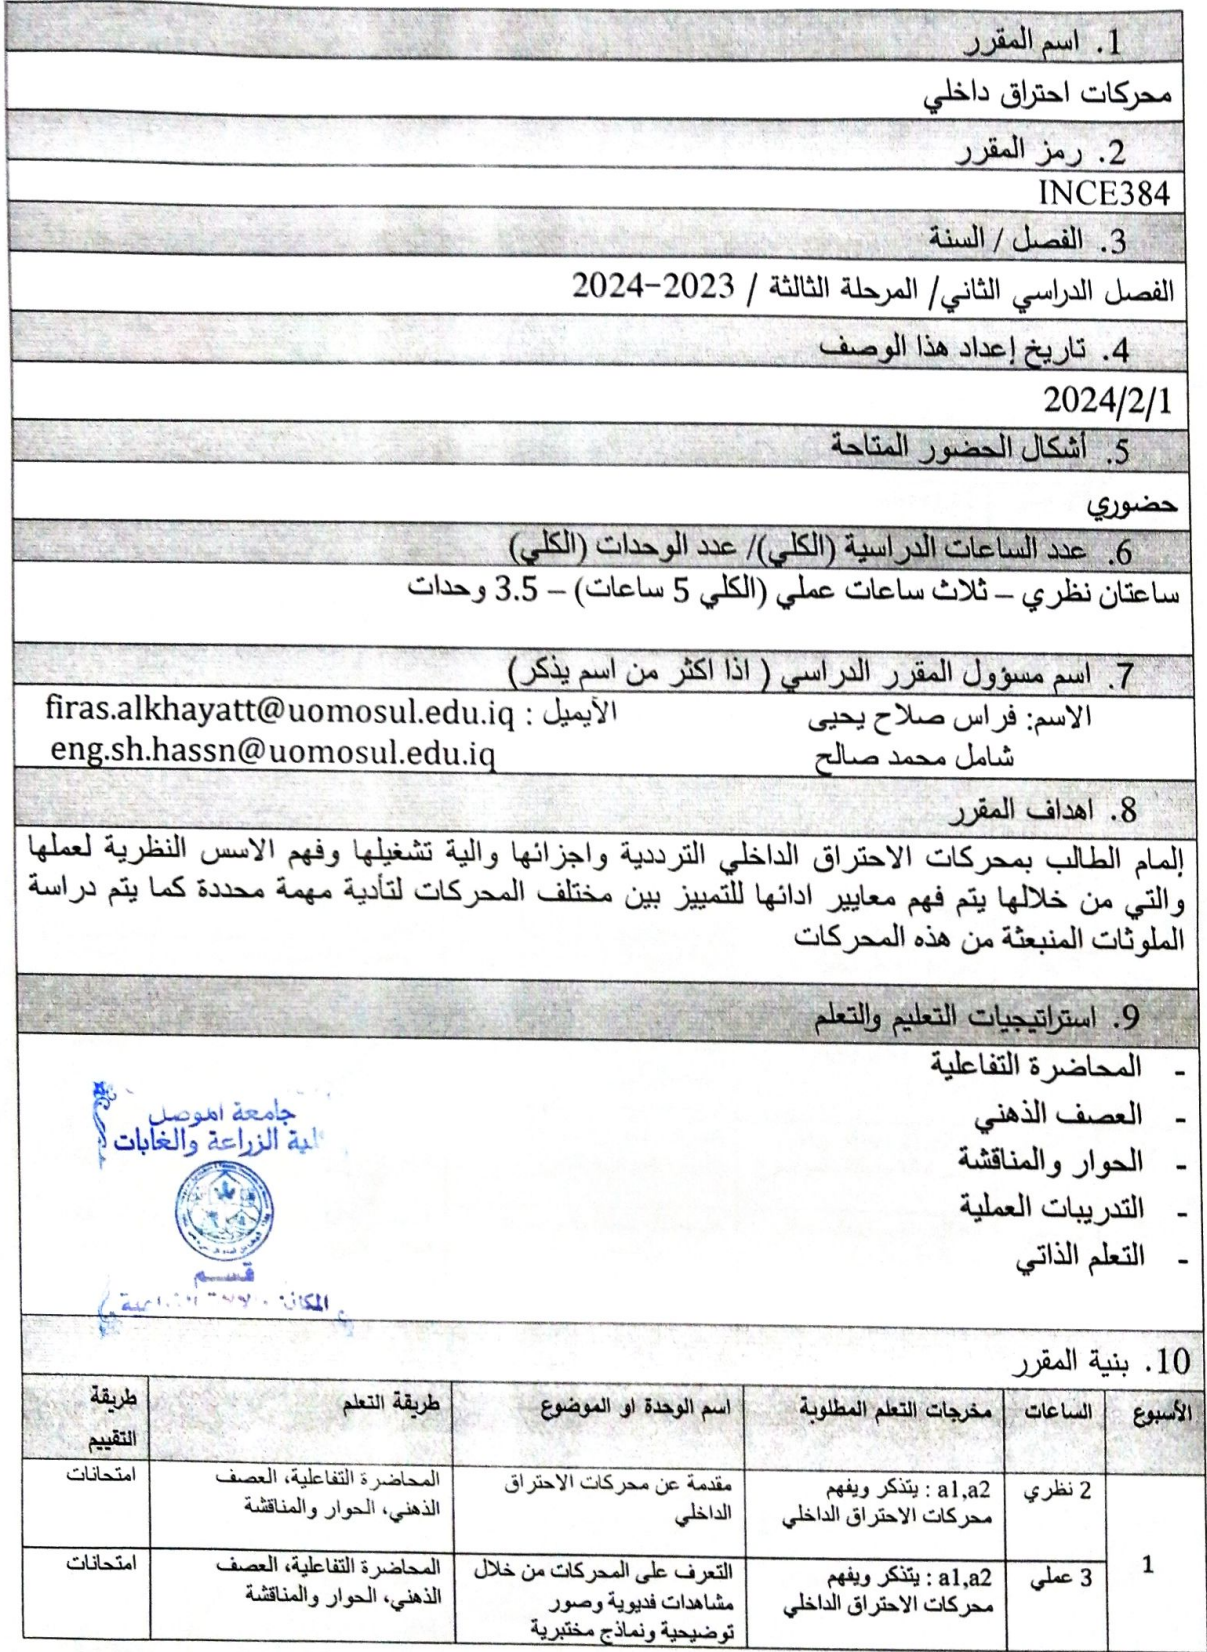 1. اسم المقرر
محركات احتراق داخلي
2. رمز المقرر
INCE384
3. الفصل / السنة
الفصل الدراسي الثاني/ المرحلة الثالثة / 2023-2024
4. تاريخ إعداد هذا الوصف
2024/2/1
5. أشكال الحضور المتاحة
حضوري
6. عدد الساعات الدراسية (الكلي)/ عدد الوحدات (الكلي)
ساعتان نظري – ثلاث ساعات عملي (الكلي 5 ساعات) – 3.5 وحدات
7. اسم مسؤول المقرر الدراسي ( اذا اكثر من اسم يذكر)
الاسم: فراس صلاح يحيى الآيميل : firas.alkhayatt@uomosul.edu.iq
شامل محمد صالح eng.sh.hassn@uomosul.edu.iq
8. اهداف المقرر
إلمام الطالب بمحركات الاحتراق الداخلي الترددية واجزائها والية تشغيلها وفهم الاسس النظرية لعملها
والتي من خلالها يتم فهم معايير ادائها للتمييز بين مختلف المحركات لتأدية مهمة محددة كما يتم دراسة
الملوثات المنبعثة من هذه المحركات
9. استراتيجيات التعليم والتعلم
- المحاضرة التفاعلية
- العصف الذهني
- الحوار والمناقشة
- التدريبات العملية
- التعلم الذاتي
جامعة الموصل
لية الزراعة والغابات
قسم
10. بنية المقرر
الأسبوع الساعات مخرجات التعلم المطلوبة اسم الوحدة او الموضوع طريقة التعلم طريقة
التقييم
1
2 نظري a1,a2 : يتذكر ويفهم مقدمة عن محركات الاحتراق المحاضرة التفاعلية، العصف امتحانات
محركات الاحتراق الداخلي الداخلي الذهني، الحوار والمناقشة
3 عملي a1,a2 : يتذكر ويفهم التعرف على المحركات من خلال المحاضرة التفاعلية، العصف امتحانات
محركات الاحتراق الداخلي مشاهدات فديوية وصور الذهني، الحوار والمناقشة
توضيحية ونماذج مختبرية